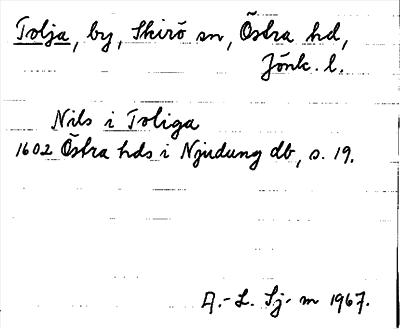 Tolja, by, Skirö sn, Östra hd,
Jönk. l.
Nils i Toliga
1602 Östra hds i Njudung db, s. 19.
A.-L. Sj-m 1967.